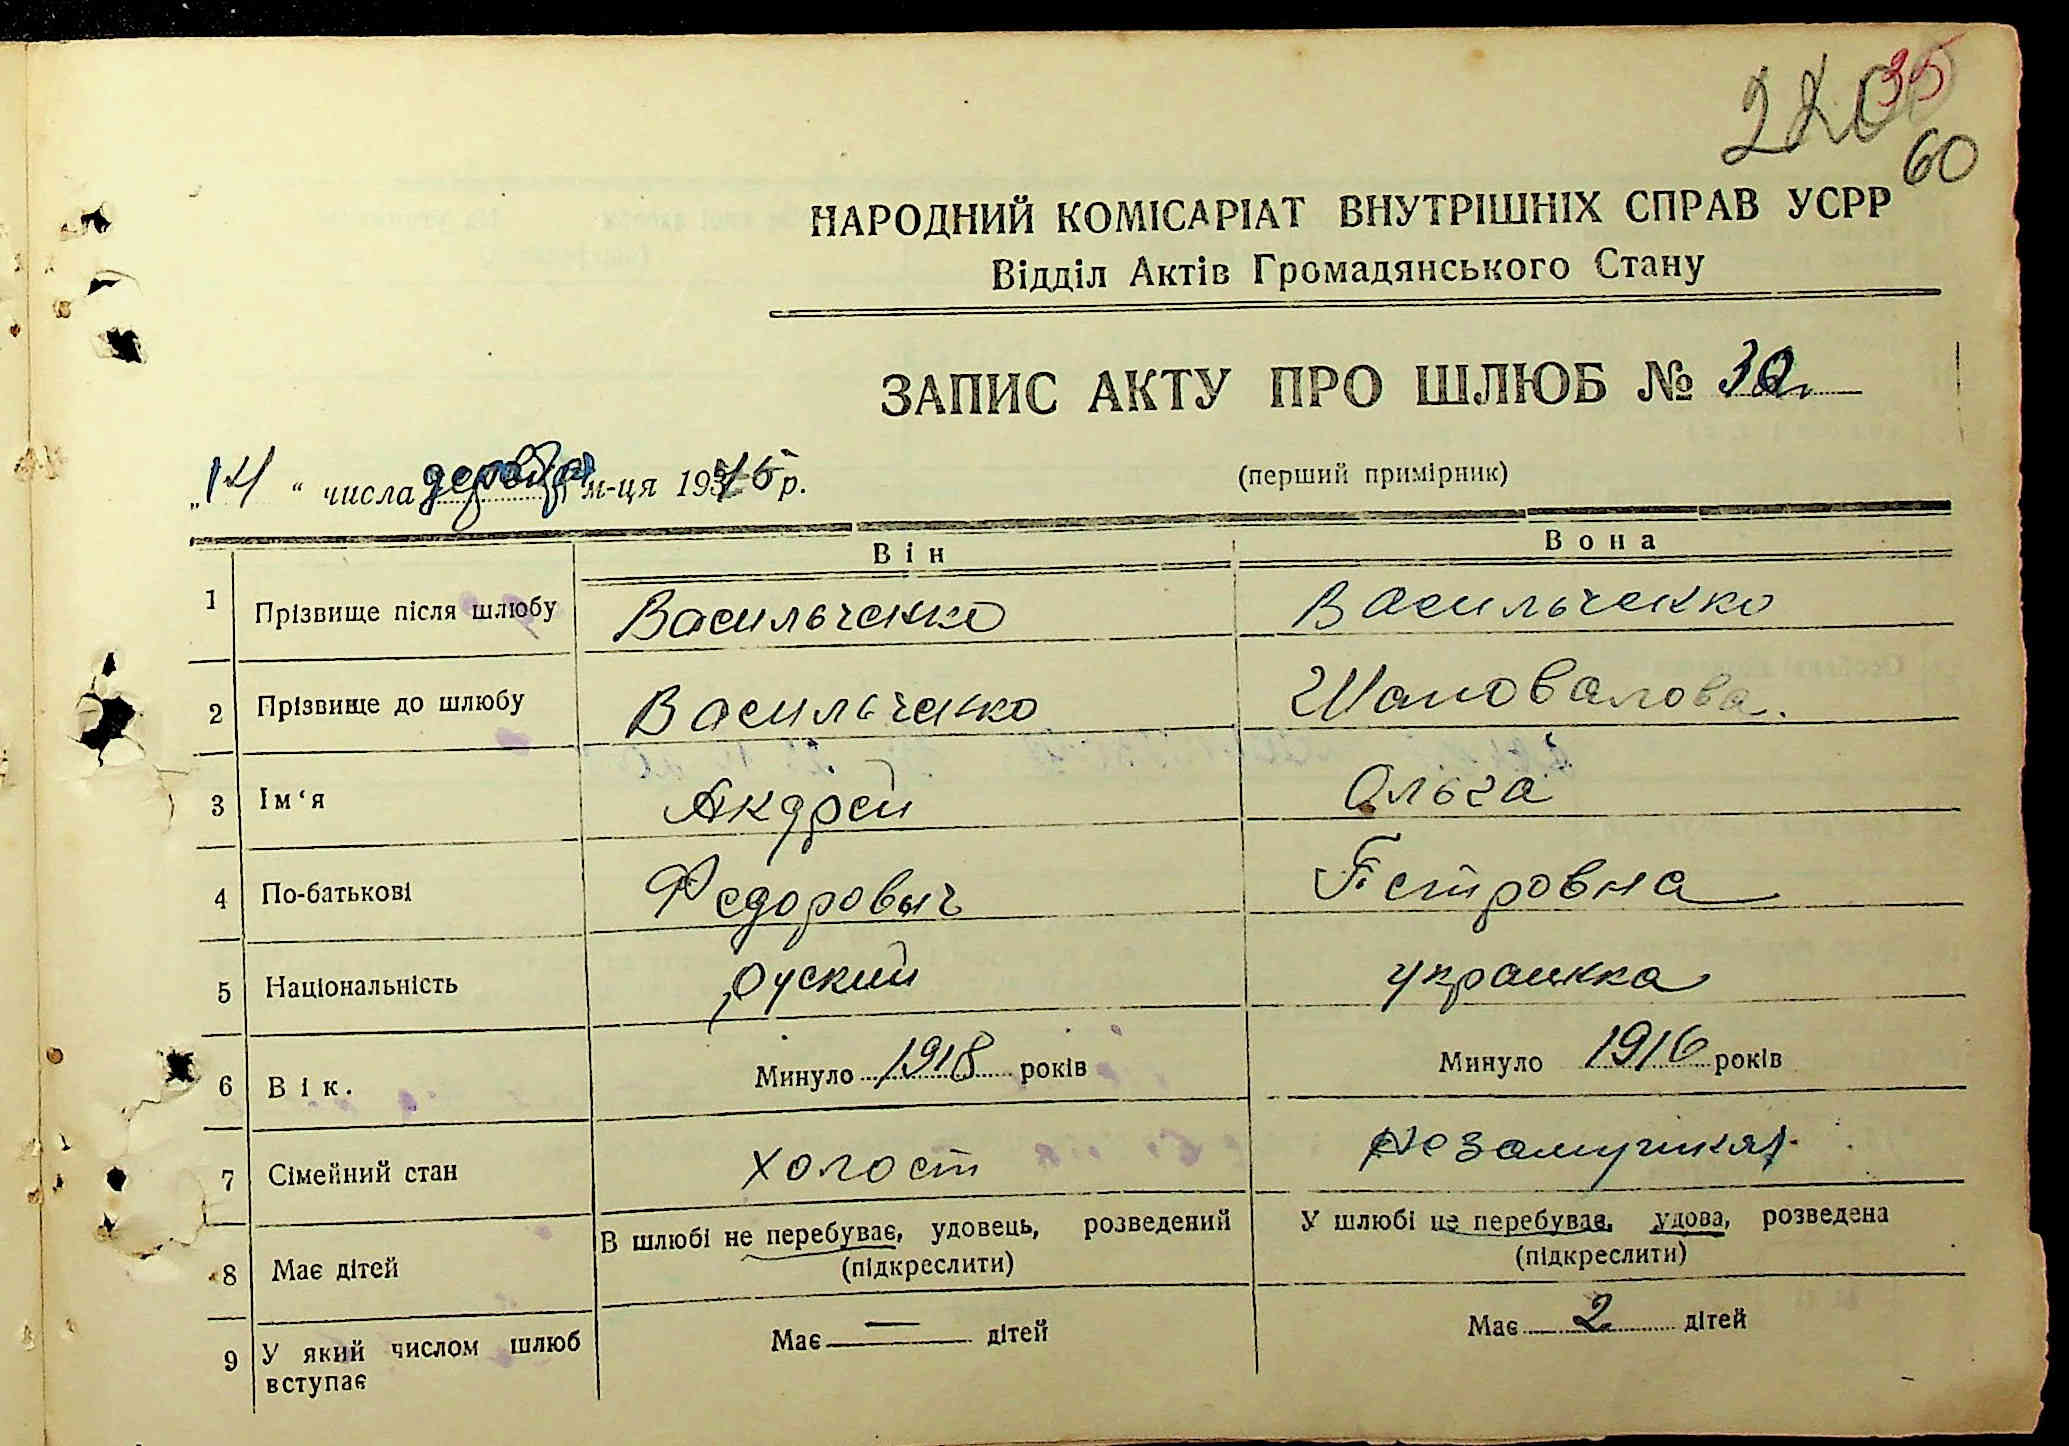 35
60
НАРОДНИЙ КОМІСАРІАТ ВНУТРІШНІХ СПРАВ УСРР
Відділ Актів Громадянського Стану
ЗАПИС АКТУ ПРО ШЛЮБ №
„14“ числа м-ця 1945 р.
(перший примірник)
Він Вона
1 Прізвище після шлюбу Васильченко Васильченко
2 Прізвище до шлюбу Васильченко Шаповалова.
3 Ім‘я Андрей Ольга
4 По-батькові Федорович Петровна
5 Національність руский украинка
6 Вік. Минуло 1918 років Минуло 1916 років
7 Сімейний стан холост
8 Має дітей В шлюбі не перебуває, удовець, розведений У шлюбі не перебуває, удова, розведена
(підкреслити) (підкреслити)
9 У який числом шлюб вступає Має — дітей Має 2 дітей